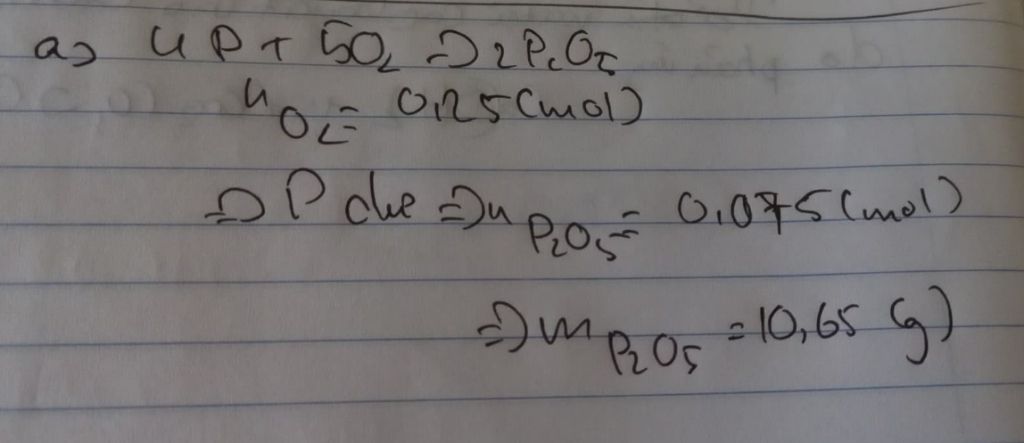 a) 4P + 5O₂ => 2P₂O₅
nO₂ = 0,25 (mol)
=> P dư => nP₂O₅ = 0,075 (mol)
=> mP₂O₅ = 10,65 (g)